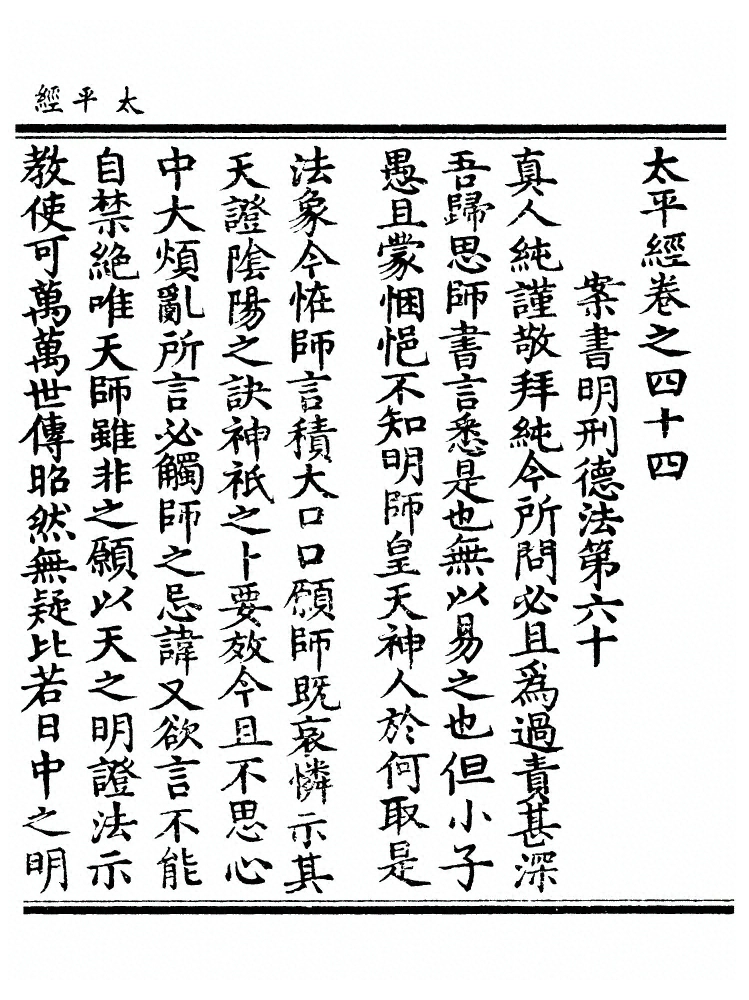 太平經
太平經卷之四十四
案書明刑德法第六十
真人純謹敬拜純今所問必且爲過責甚深
吾歸思師書言悉是也無以易之也但小子
愚且蒙悃悒不知明師皇天神人於何取是
法象今怪師言積大口口願師既哀憐示其
天證陰陽之訣神祇之卜要效今且不思心
中大煩亂所言必觸師之忌諱又欲言不能
自禁絶唯天師雖非之願以天之明證法示
教使可萬萬世傳昭然無疑比若日中之明